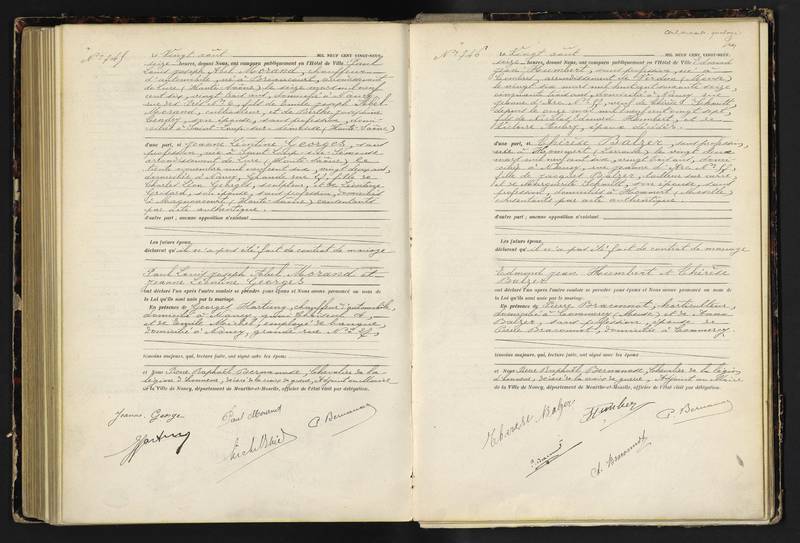 N° 745
Le Vingt août MIL NEUF CENT VINGT-NEUF,
seize heures, devant Nous, ont comparu publiquement en l'Hôtel de Ville Paul
Louis Joseph Abel Morand, chauffeur
d'automobile, né à
de Lure (Haute Saône) le seize
cent six, vingt trois ans, domicilié à Nancy,
rue des fils de Emile Joseph Abel
Morand, cultivateur, et de Berthe Joséphine
son épouse, sans profession, domi-
ciliés à Saint Loup sur Semouse (Haute Saône)
d'une part, et Jeanne Léontine Georges, sans
profession, née à Saint Loup sur Semouse
arrondissement de Lure (Haute Saône) le
trente novembre mil neuf cent six, vingt deux ans,
domiciliée à Nancy, Grande rue fille de
Charles Léon Georges, sculpteur, et de Léontine
son épouse, sans profession, domiciliés
à Magnoncourt (Haute Saône) consentants
par acte authentique.
d'autre part ; aucune opposition n'existant
Les futurs époux
déclarent qu'il n'a pas été fait de contrat de mariage
Paul Louis Joseph Abel Morand et
Jeanne Léontine Georges
ont déclaré l'un après l'autre vouloir se prendre pour époux et Nous avons prononcé au nom de
la Loi qu'ils sont unis par le mariage.
En présence de Georges Hartung, chauffeur automobile,
domicilié à Nancy, quai Choiseul
et de Emile Michel, employé de banque,
domicilié à Nancy, grande rue N°
témoins majeurs, qui, lecture faite, ont signé avec les époux
et Nous Pierre Raphaël Bernanose, Chevalier de la
Légion d'honneur, décoré de la croix de guerre, Adjoint au Maire
de la Ville de Nancy, département de Meurthe-et-Moselle, officier de l'état civil par délégation.
Jeanne George
Paul Morand
P Bernanose
Hartung
N° 746
Le Vingt août MIL NEUF CENT VINGT-NEUF,
seize heures, devant Nous, ont comparu publiquement en l'Hôtel de Ville Edmond
Jean Humbert, sans profession, né à
arrondissement de Verdun (Meuse)
le vingt six mil huit cent soixante seize,
cinquante trois ans, domicilié à Nancy, rue
Jeanne d'Arc N° veuf de
depuis le onze mai mil neuf cent vingt sept,
fils de Nicolas Edmond Humbert, et de
Victoire Aubry, époux décédés.
d'une part, et Thérèse Balzer, sans profession,
née à Hommert (Lorraine) le vingt deux
mars mil neuf cent six, vingt trois ans, domi-
ciliée à Nancy, rue Jeanne d'Arc N°
fille de Jacques Balzer, tailleur sur verre,
et de Marguerite son épouse, sans
profession, domiciliés à Hommert (Moselle)
consentants par acte authentique
d'autre part ; aucune opposition n'existant
Les futurs époux
déclarent qu'il n'a pas été fait de contrat de mariage
Edmond Jean Humbert et Thérèse
Balzer
ont déclaré l'un après l'autre vouloir se prendre pour époux et Nous avons prononcé au nom de
la Loi qu'ils sont unis par le mariage.
En présence de Pierre Braconnot, horticulteur,
domicilié à Commercy (Meuse) et de Anna
Balzer, sans profession, épouse de
Pierre Braconnot, domiciliée à Commercy.
témoins majeurs, qui, lecture faite, ont signé avec les époux
et Nous Pierre Raphaël Bernanose, Chevalier de la Légion
d'honneur, décoré de la croix de guerre, Adjoint au Maire
de la Ville de Nancy, département de Meurthe-et-Moselle, officier de l'état civil par délégation.
Thérèse Balzer
Humbert
P Bernanose
A. Braconnot